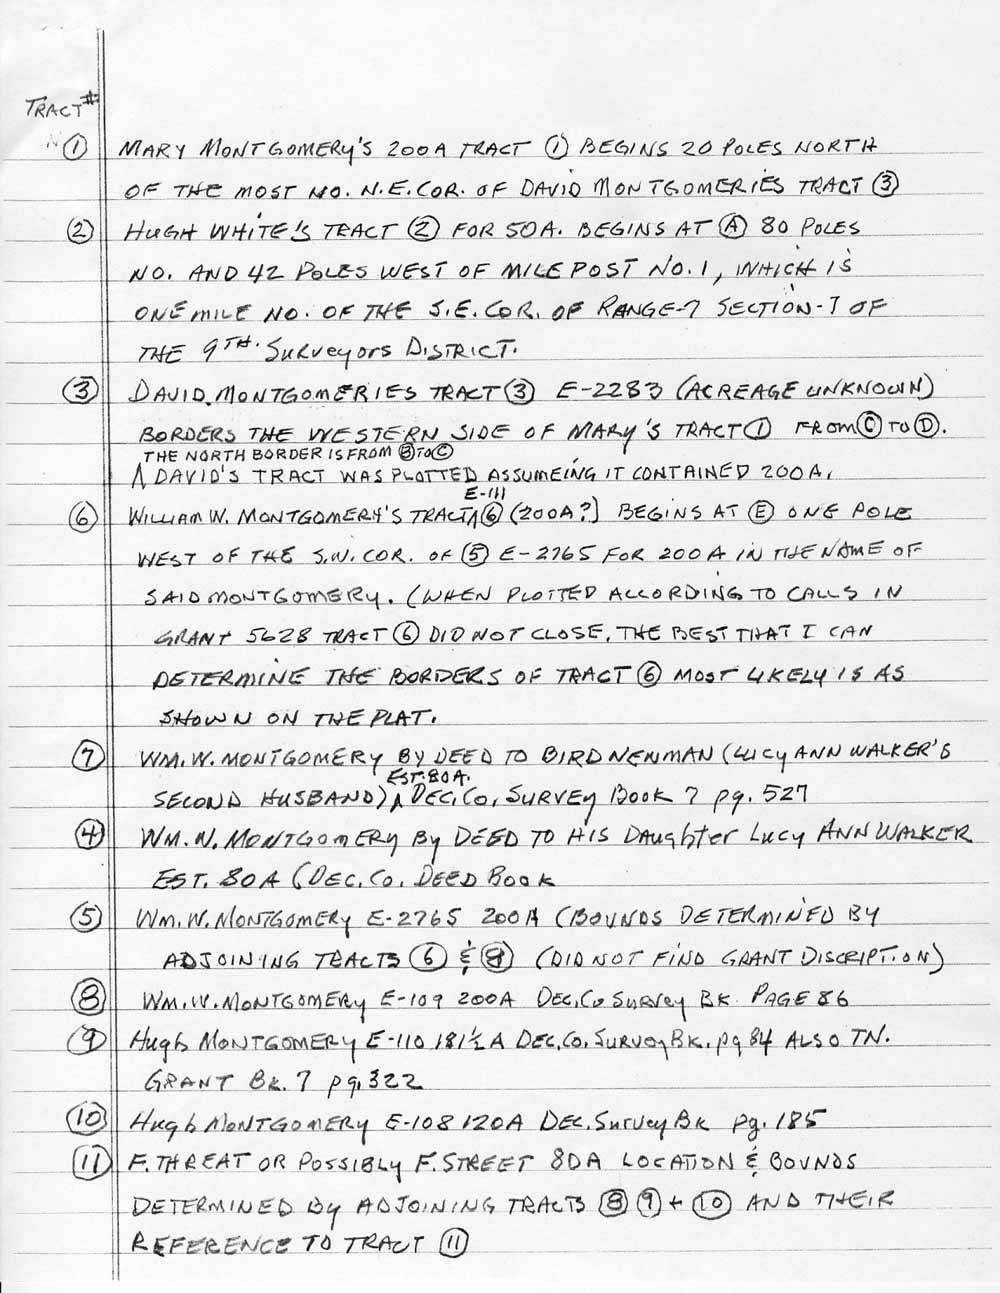 TRACT #
① MARY MONTGOMERY'S 200A TRACT ① BEGINS 20 POLES NORTH
OF THE MOST NO. N.E. COR. OF DAVID MONTGOMERIES TRACT ③
② HUGH WHITE'S TRACT ② FOR 50A. BEGINS AT Ⓐ 80 POLES
NO. AND 42 POLES WEST OF MILE POST NO. 1, WHICH IS
ONE MILE NO. OF THE S.E. COR. OF RANGE-7 SECTION-7 OF
THE 9TH. SURVEYORS DISTRICT.
③ DAVID MONTGOMERIES TRACT ③ E-2283 (ACREAGE UNKNOWN)
BORDERS THE WESTERN SIDE OF MARY'S TRACT ① FROM Ⓒ TO Ⓓ.
THE NORTH BORDER IS FROM Ⓑ TO Ⓒ
DAVID'S TRACT WAS PLOTTED ASSUMEING IT CONTAINED 200A.
E-111
⑥ WILLIAM W. MONTGOMERY'S TRACT ⑥ (200A?) BEGINS AT Ⓔ ONE POLE
WEST OF THE S.W. COR. OF ⑤ E-2765 FOR 200A IN THE NAME OF
SAID MONTGOMERY. (WHEN PLOTTED ACCORDING TO CALLS IN
GRANT 5628 TRACT ⑥ DID NOT CLOSE. THE BEST THAT I CAN
DETERMINE THE BORDERS OF TRACT ⑥ MOST LIKELY IS AS
SHOWN ON THE PLAT.
⑦ WM. W. MONTGOMERY BY DEED TO BIRD NEWMAN (LUCY ANN WALKER'S
EST. 80A.
SECOND HUSBAND) DEC. CO. SURVEY BOOK 7 pg. 527
④ WM. W. MONTGOMERY By DEED TO HIS Daughter Lucy ANN WALKER
EST. 80A (DEC. CO. DEED BOOK
⑤ WM. W. MONTGOMERY E-2765 200A (BOUNDS DETERMINED BY
ADJOINING TRACTS ⑥ & ⑧ (DID NOT FIND GRANT DISCRIPTION)
⑧ WM. W. MONTGOMERY E-109 200A DEC. CO SURVEY BK. PAGE 86
⑨ Hugh MONTGOMERY E-110 181½ A DEC. CO. SURVEY BK. pg 84 ALSO TN.
GRANT BK. 7 pg. 322
⑩ Hugh MONTGOMERY E-108 120A DEC. SURVEY BK pg. 185
⑪ F. THREAT OR POSSIBLY F. STREET 80A LOCATION & BOUNDS
DETERMINED By ADJOINING TRACTS ⑧ ⑨ + ⑩ AND THEIR
REFERENCE TO TRACT ⑪